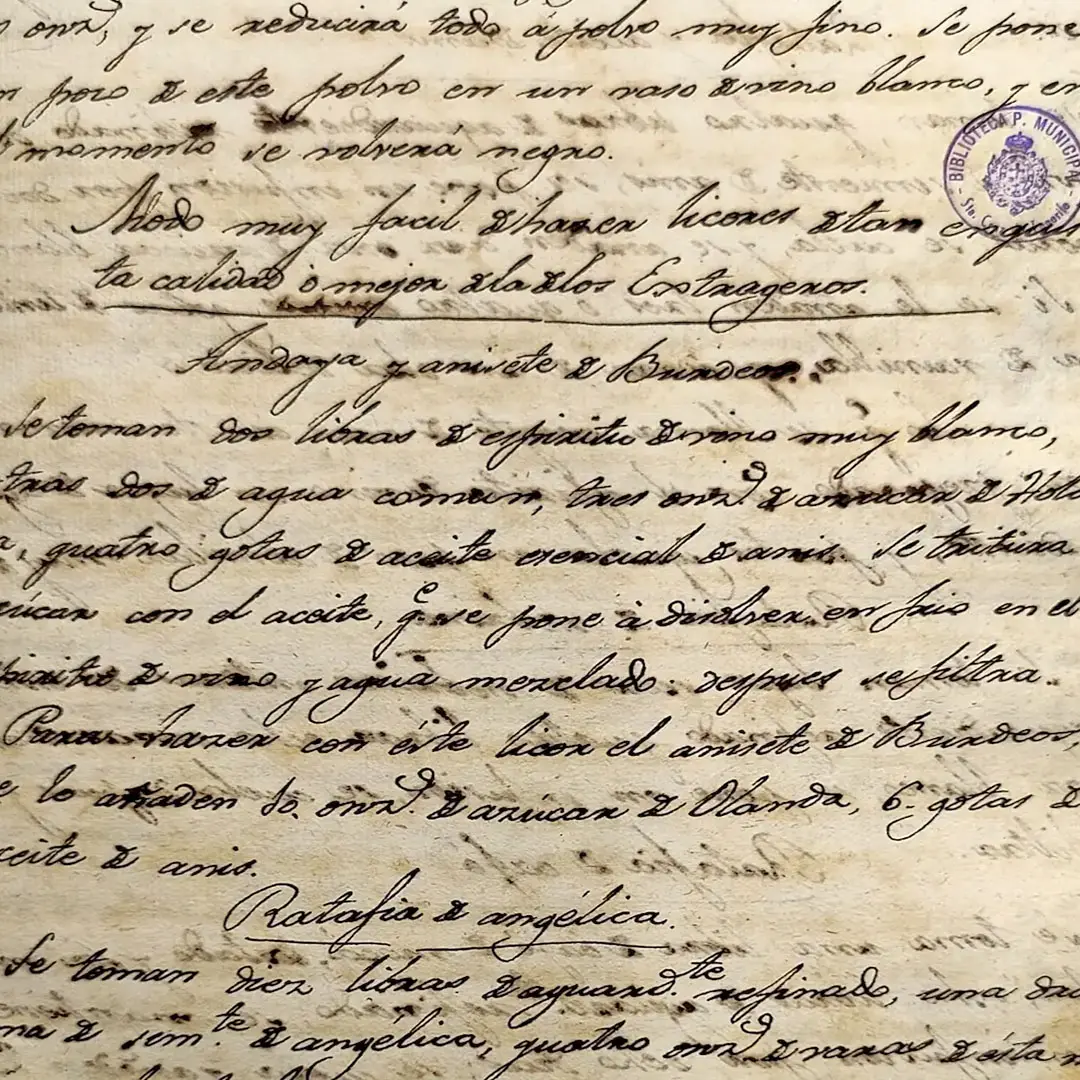 onz.s, y se reducirá todo á polvo muy fino. Se pone
poco de este polvo en un vaso de vino blanco, y en
momento se volverá negro.
BIBLIOTECA P. MUNICIPAL
Modo muy facil de hazer licores de tan enquisi
ta calidad o mejor de la de los Extrageros.
Andaya y anisete de Burdeos.
Se toman dos libras de espiritu de vino muy blanco,
tras dos de agua comun, tres onz.s de azucar de Hola
a, quatro gotas de aceite esencial de anis. Se tritura
zúcar con el aceite, q.e se pone á disolver en frio en el
piritu de vino y agua mezclado: despues se filtra.
Para hazer con éste licor el anisete de Burdeos,
e lo añaden 10. onz.s de azúcar de Olanda, 6. gotas de
ceite de anis.
Ratafia de angélica.
Se toman diez libras de aguard.te refinado, una drac
ma de sim.te de angélica, quatro onz.s de raras de ésta